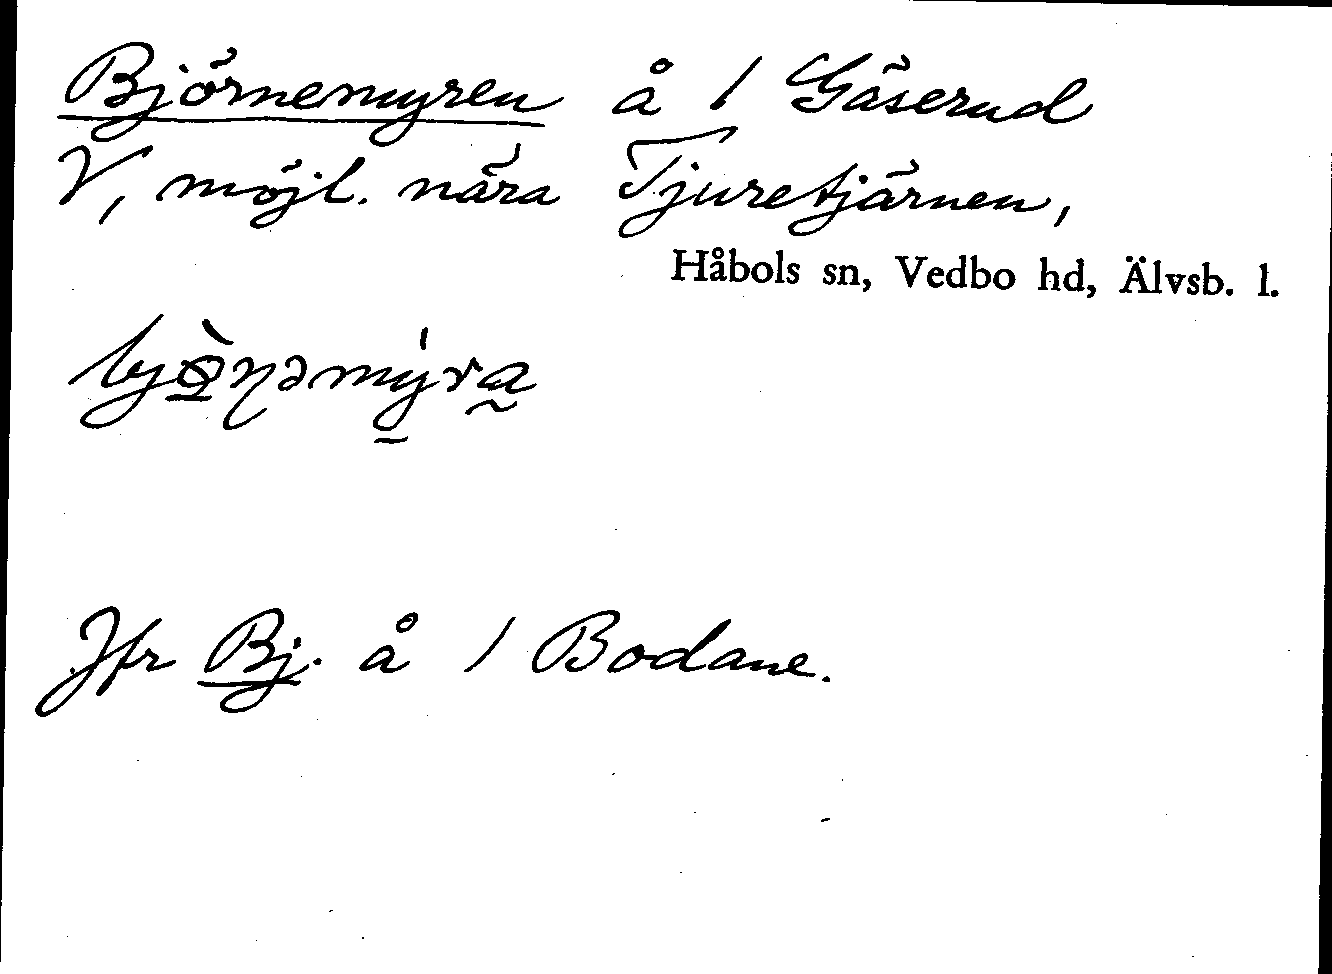 Björnemyren å 1 Gäserud
V, möjl. nära Tjuretjärnen,
Håbols sn, Vedbo hd, Älvsb. l.
Jfr Bj. å 1 Bodane.